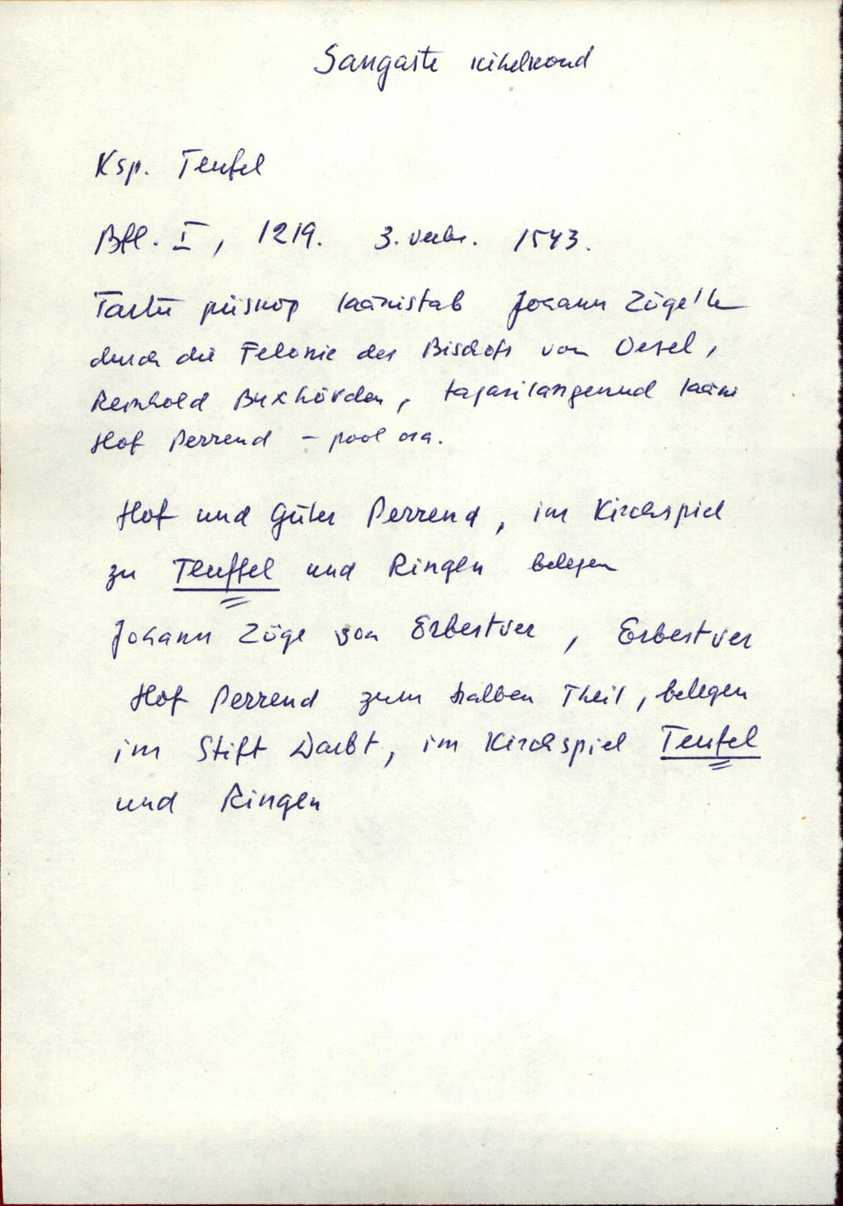 Sangaste kihelkond
Ksp. Teufel
Bfl. I, 1219. 3. veebr. 1543.
Tartu piiskop läänistab Johann Zöge'le
durch die Felonie des Bischofs von Oesel,
Reinhold Buxhövden, tagasilangenud lääni
Hof Perrend – pool osa.
Hof und Güter Perrend, im Kirchspiel
zu Teuffel und Ringen belegen
Johann Zöge von Erbestver, Erbestver
Hof Perrend zum halben Theil, belegen
im Stift Darbt, im Kirchspiel Teufel
und Ringen